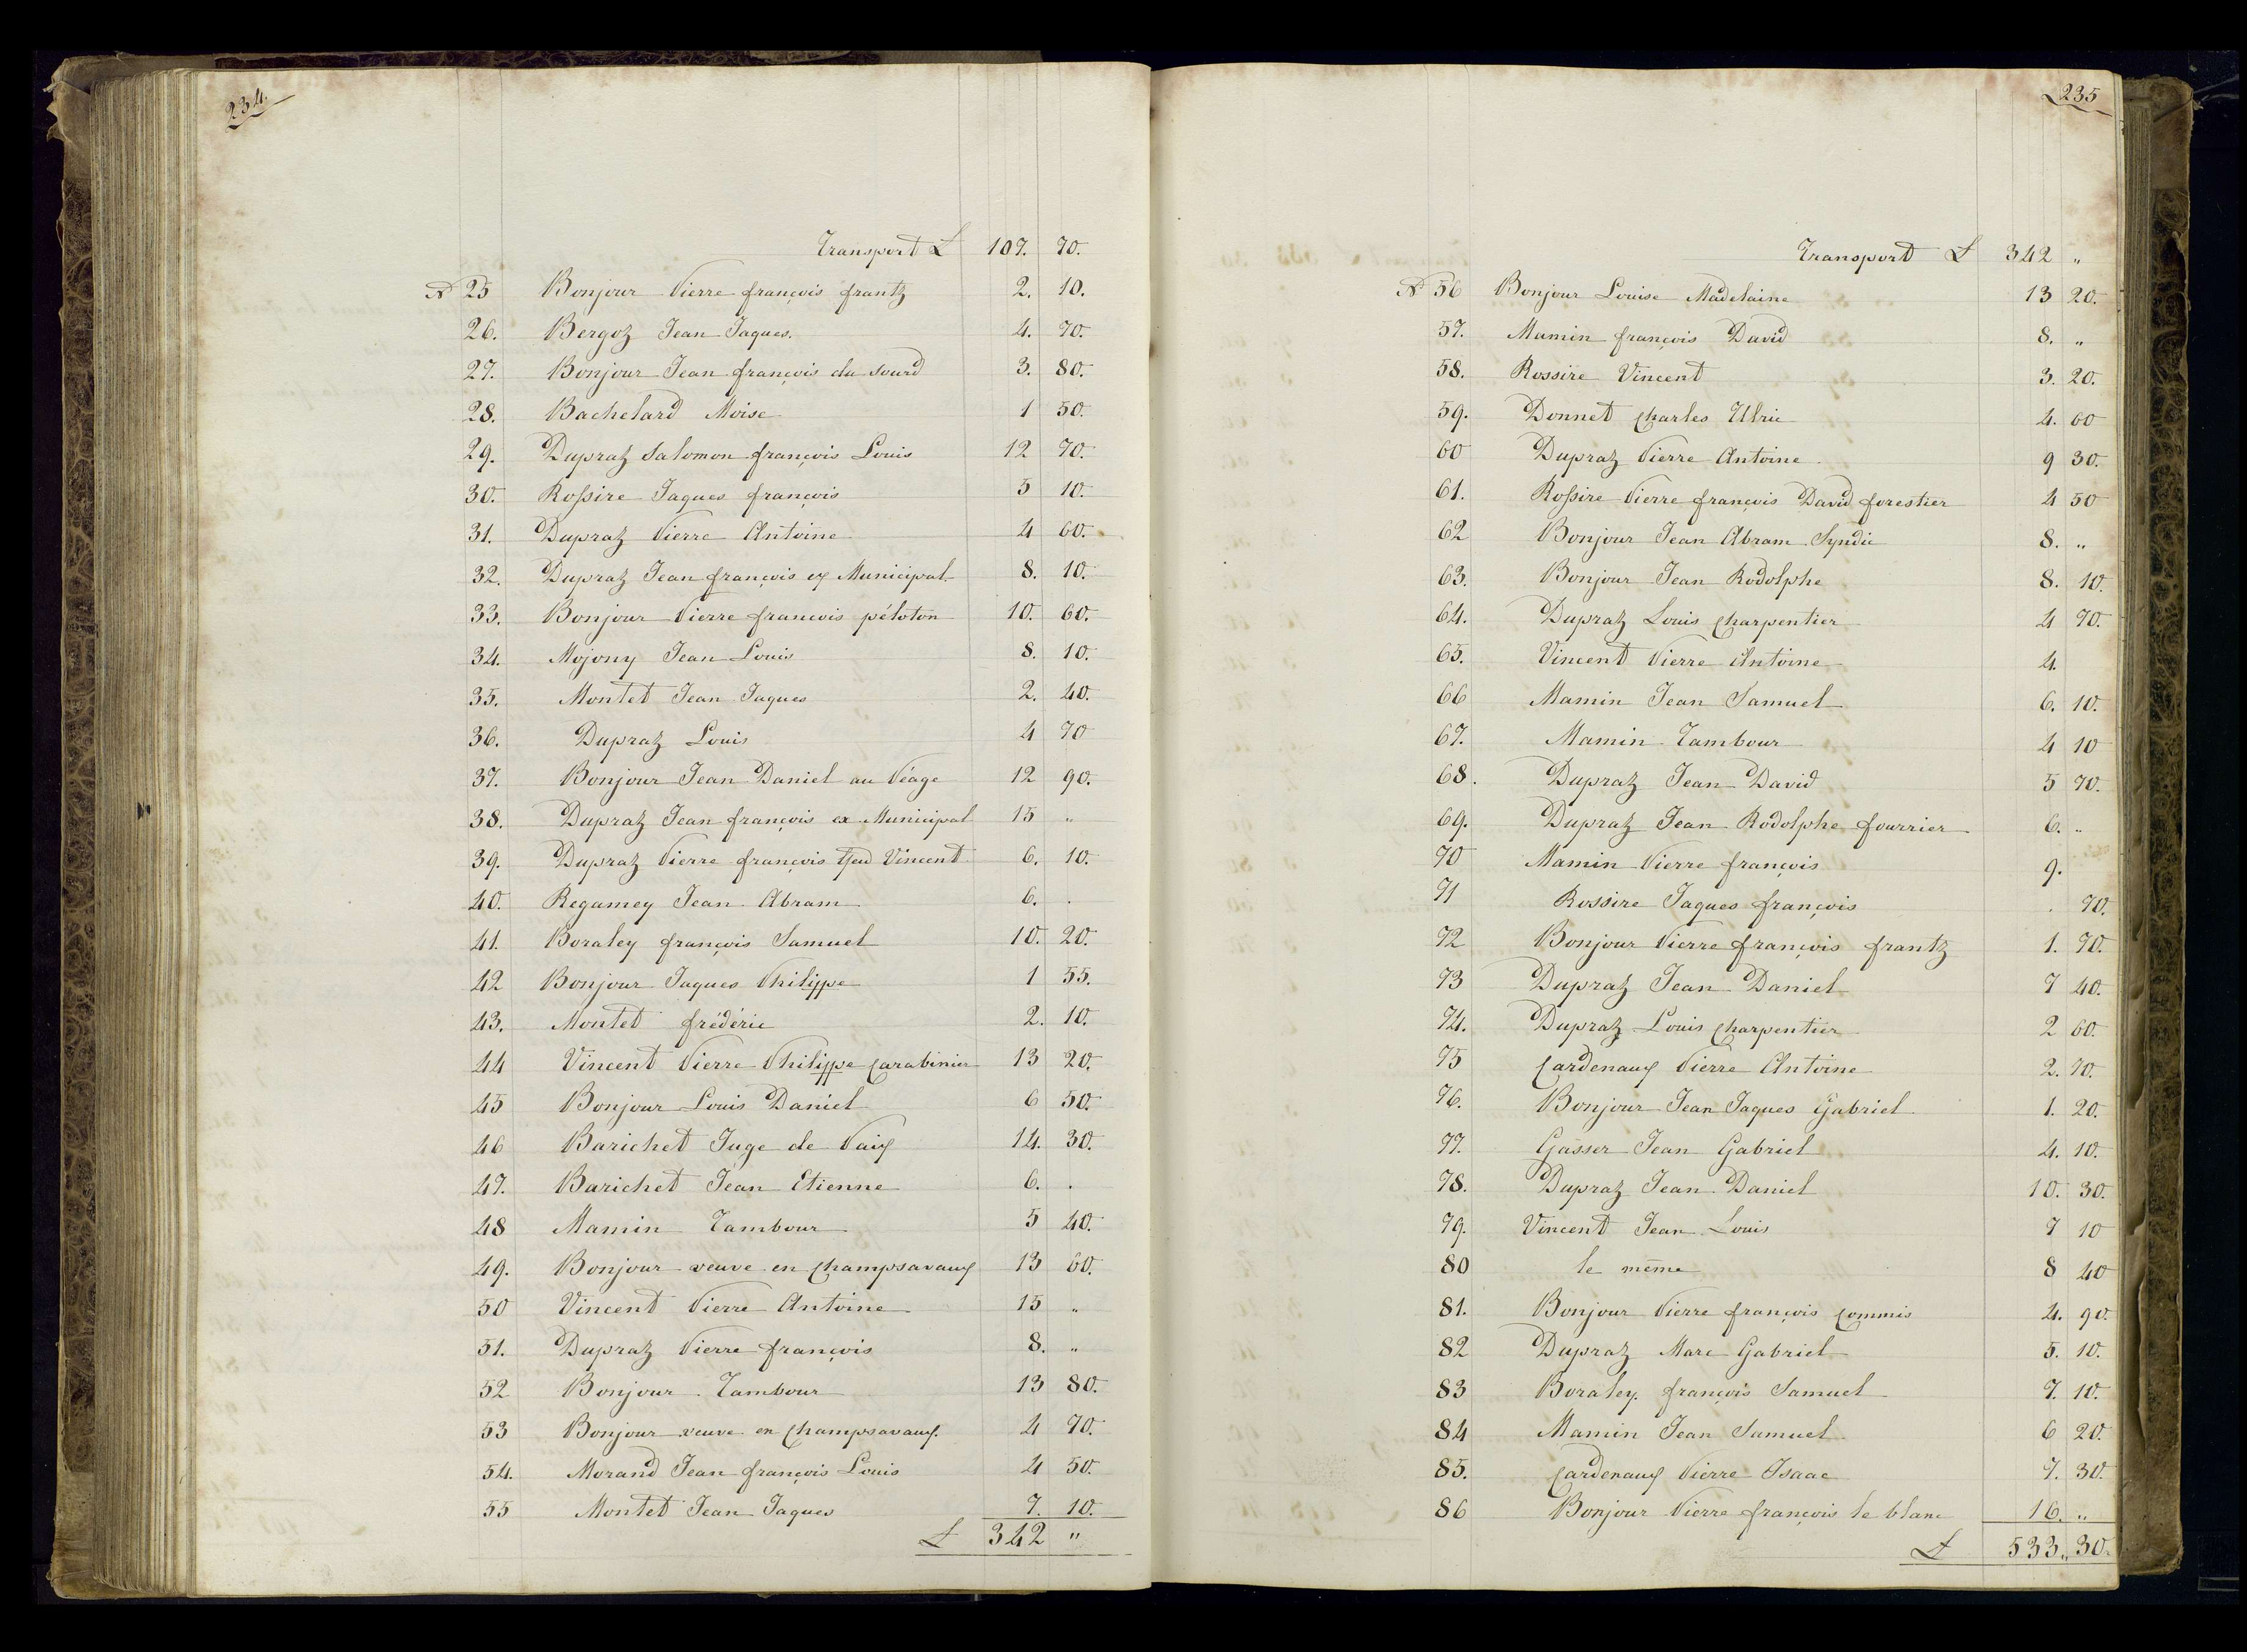 234.
Transport £ 107. 70.
N 25 Bonjour Pierre françois frantz 2. 10.
26. Bergoz Jean Jaques. 4. 70.
27. Bonjour Jean françois du sourd 3. 80.
28. Bachelard Moise 1 50.
29. Dupraz Salomon françois Louis 12 70.
30. Roſsire Jaques françois 5 10.
31. Dupraz Pierre Antoine 4 60.
32. Dupraz Jean françois ex Municipal. 8. 10.
33. Bonjour Pierre francois péloton 10. 60.
34. Mojony Jean Louis 8. 10.
35. Montet Jean Jaques 2. 40.
36. Dupraz Louis 4 70
37. Bonjour Jean Daniel au Péage 12 90.
38. Dupraz Jean françois ex Municipal 15 "
39. Dupraz Pierre françois feu Vincent 6. 10.
40. Regamey Jean Abram 6. .
41. Boraley françois Samuel 10. 20.
42 Bonjour Jaques Philippe 1 55.
43. Montet frédéric 2. 10.
44 Vincent Pierre Philippe Carabinier 13 20.
45 Bonjour Louis Daniel 6 50.
46 Barichet Juge de Paix 14. 30.
47. Barichet Jean Etienne 6. .
48 Mamin Tambour 5 40.
49. Bonjour veuve en Champsavaux 13 60.
50 Vincent Pierre Antoine 15 "
51. Dupraz Pierre françois 8. "
52 Bonjour Tambour 13 80.
53 Bonjour veuve en Champsavaux. 4 70.
54. Morand Jean françois Louis 4 50.
55 Montet Jean Jaques 7. 10.
£ 342 "
235
Transport £ 342 "
N 56 Bonjour Louise Madelaine 13 20.
57. Mamin françois David 8. "
58. Rossire Vincent 3. 20.
59. Donnet Charles Ulric 4. 60
60 Dupraz Pierre Antoine 9 30.
61. Roſsire Pierre françois David forestier 4 50
62 Bonjour Jean Abram Syndic 8. "
63. Bonjour Jean Rodolphe 8. 10.
64. Dupraz Louis Charpentier 4 70.
65. Vincent Pierre Antoine 4.
66 Mamin Jean Samuel 6. 10.
67. Mamin Tambour 4 10
68. Dupraz Jean David 5 70.
69. Dupraz Jean Rodolphe fourrier 6. "
70 Mamin Pierre françois 9.
71 Rossire Jaques françois . 70.
72 Bonjour Pierre françois frantz 1. 70.
73 Dupraz Jean Daniel 7 40.
74. Dupraz Louis Charpentier 2 60.
75 Cardenaux Pierre Antoine 2. 70.
76. Bonjour Jean Jaques Gabriel 1. 20.
77. Gasser Jean Gabriel 4. 10.
78. Dupraz Jean Daniel 10. 30.
79. Vincent Jean Louis 7 10
80 le même 8 40
81. Bonjour Pierre françois Commis 4. 90.
82 Dupraz Marc Gabriel 5. 10.
83 Boraley françois Samuel 7. 10.
84 Mamin Jean Samuel 6 20.
85. Cardenaux Pierre Isaac 7. 30.
86 Bonjour Pierre françois le blanc 16. "
£ 533 " 30.